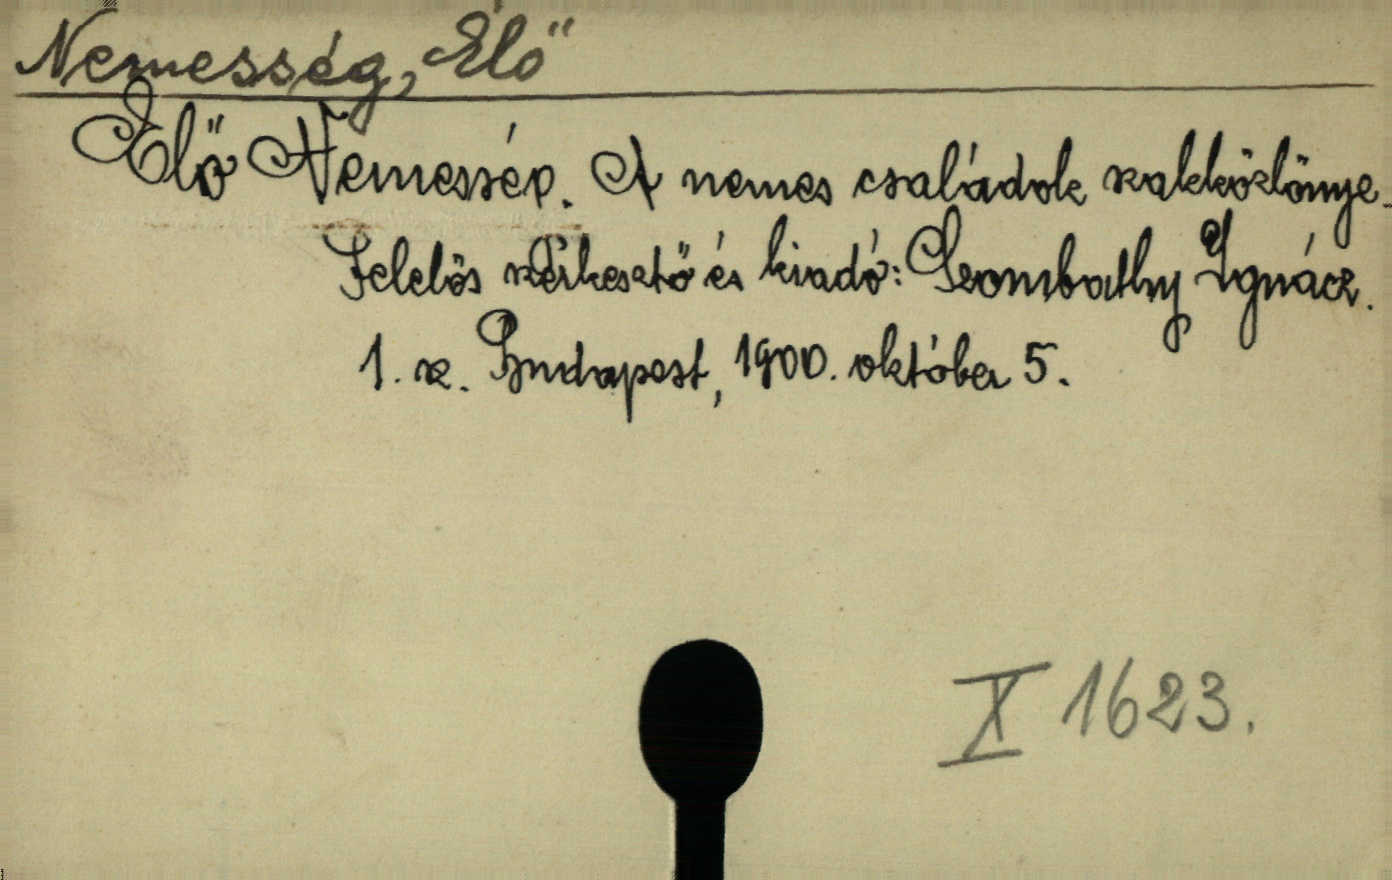 Nemesség, Élő
Élő Nemesség. A nemes családok szakközlönye.
Felelős szerkesztő és kiadó: Szombathy Ignácz.
1. sz. Budapest, 1900. október 5.
X 1623.